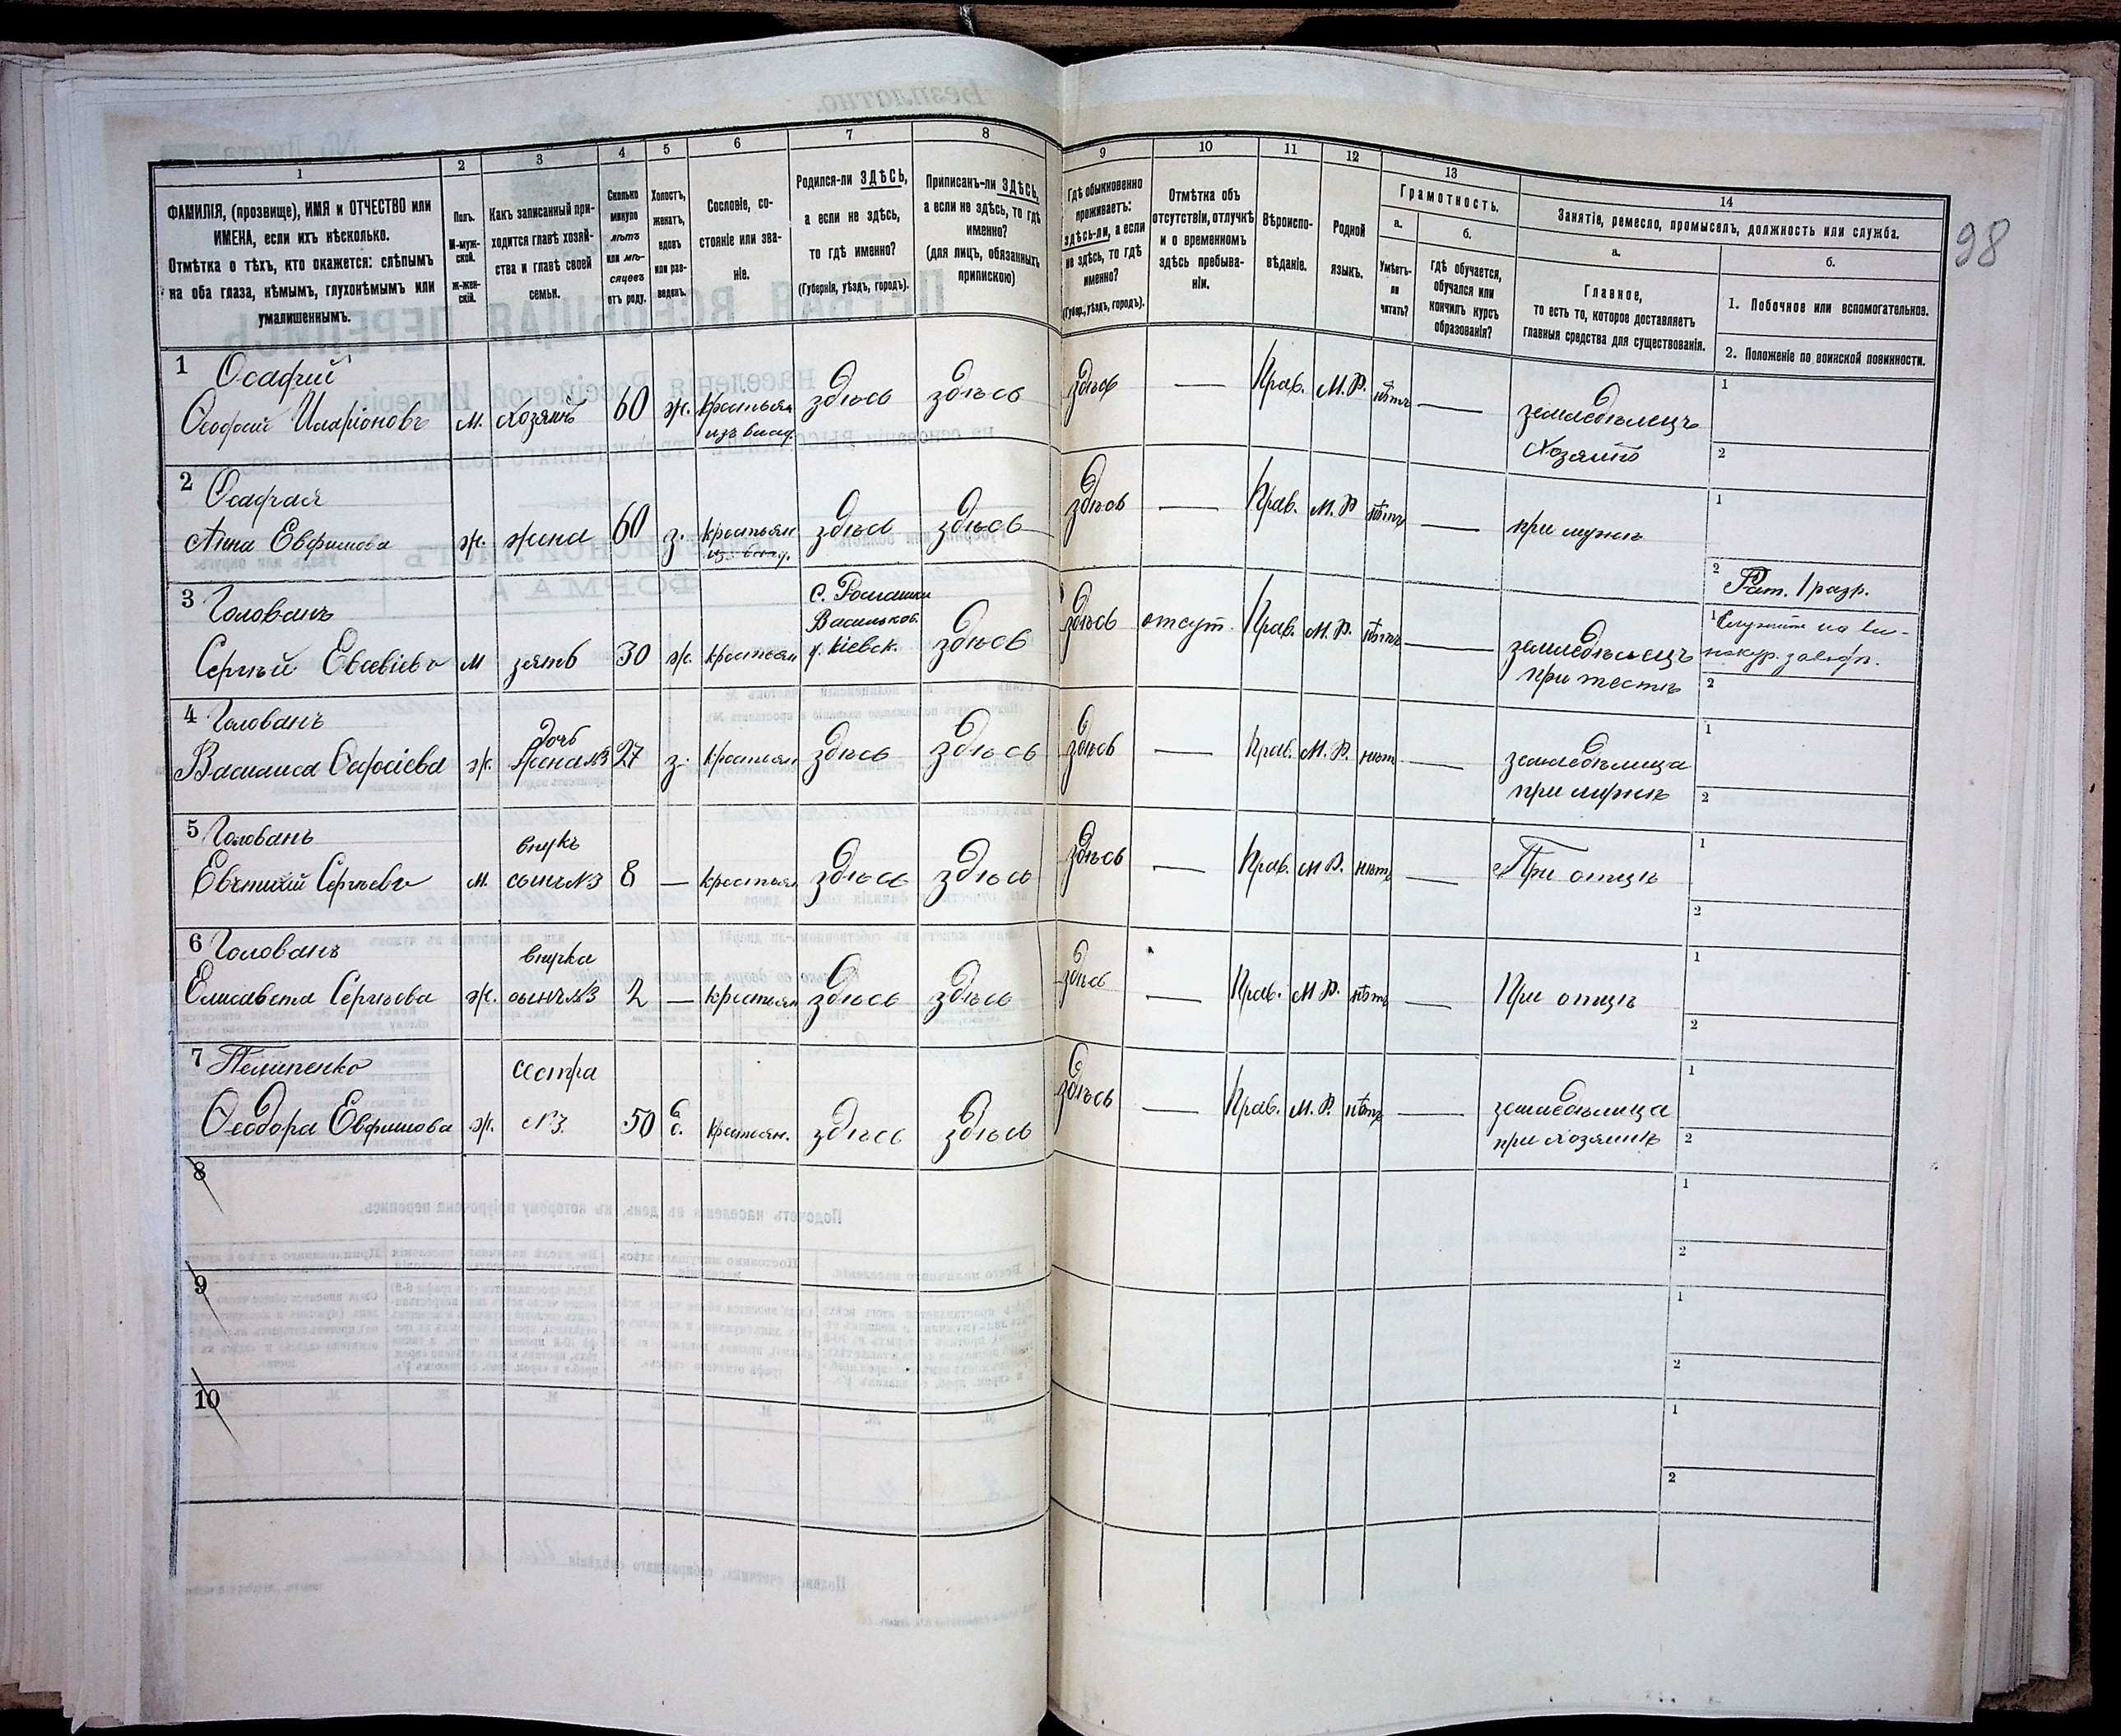 98
1 2 3 4 5 6 7 8 9 10 11 12 13 14
ФАМИЛІЯ, (прозвище), ИМЯ и ОТЧЕСТВО или
ИМЕНА, если ихъ нѣсколько.
Отмѣтка о тѣхъ, кто окажется: слѣпымъ
на оба глаза, нѣмымъ, глухонѣмымъ или
умалишеннымъ.
Полъ.
М-муж-
ской.
Ж-жен-
скій.
Какъ записанный при-
ходится главѣ хозяй-
ства и главѣ своей
семьи.
Сколько
минуло
лѣтъ
или мѣ-
сяцевъ
отъ роду.
Холостъ,
женатъ,
вдовъ
или раз-
веденъ.
Сословіе, со-
стояніе или зва-
ніе.
Родился-ли ЗДѢСЬ,
а если не здѣсь,
то гдѣ именно?
(Губернія, уѣздъ, городъ).
Приписанъ-ли ЗДѢСЬ,
а если не здѣсь, то гдѣ
именно?
(для лицъ, обязанныхъ
припискою)
Гдѣ обыкновенно
проживаетъ:
здѣсь-ли, а если
не здѣсь, то гдѣ
именно?
(Губер., уѣздъ, городъ).
Отмѣтка объ
отсутствіи, отлучкѣ
и о временномъ
здѣсь пребыва-
ніи.
Вѣроиспо-
вѣданіе.
Родной
языкъ.
Грамотность.
а.
Умѣетъ-
ли
читать?
б.
гдѣ обучается,
обучался или
кончилъ курсъ
образованія?
Занятіе, ремесло, промыселъ, должность или служба.
а.
Главное,
то есть то, которое доставляетъ
главныя средства для существованія.
б.
1. Побочное или вспомогательное.
2. Положеніе по воинской повинности.
1 Осафий
Иларіоновъ м. хозяинъ 60 ж. крестьян здѣсь здѣсь здѣсь — Прав. М.Р. нѣтъ — земледѣлецъ 1
изъ хозяинъ 2
2
Анна Евфимова ж. жена 60 з. крестьян здѣсь здѣсь здѣсь — Прав. М.Р. нѣтъ — при мужѣ 1
2 Рат. 1 разр.
3 Голованъ С. Ромашки
Васильков.
Сергѣй м зять 30 ж. крестьян у. Кіевск. здѣсь здѣсь отсут. Прав. М.Р. нѣтъ — земледѣлецъ 1 Служитъ на ви-
при тестѣ нокур. завод. 2
4 Голованъ дочь
Василиса ж. жена №3 27 з. крестьян здѣсь здѣсь здѣсь — Прав. М.Р. нѣтъ — земледѣлица 1
при мужѣ 2
5 Голованъ внукъ
Сергѣевъ м. сынъ №3 8 — крестьян здѣсь здѣсь здѣсь — Прав. М.Р. нѣтъ — При отцѣ 1
2
6 Голованъ внучка
Елисавета Сергѣева ж. №3 2 — крестьян здѣсь здѣсь здѣсь — Прав. М.Р. нѣтъ — При отцѣ 1
2
7 Пелипенко сестра
Ѳеодора Евфимова ж. №3. 50 крестьян. здѣсь здѣсь здѣсь — Прав. М.Р. нѣтъ — земледѣлица 1
при хозяинѣ 2
8 1
2
9 1
2
10 1
2